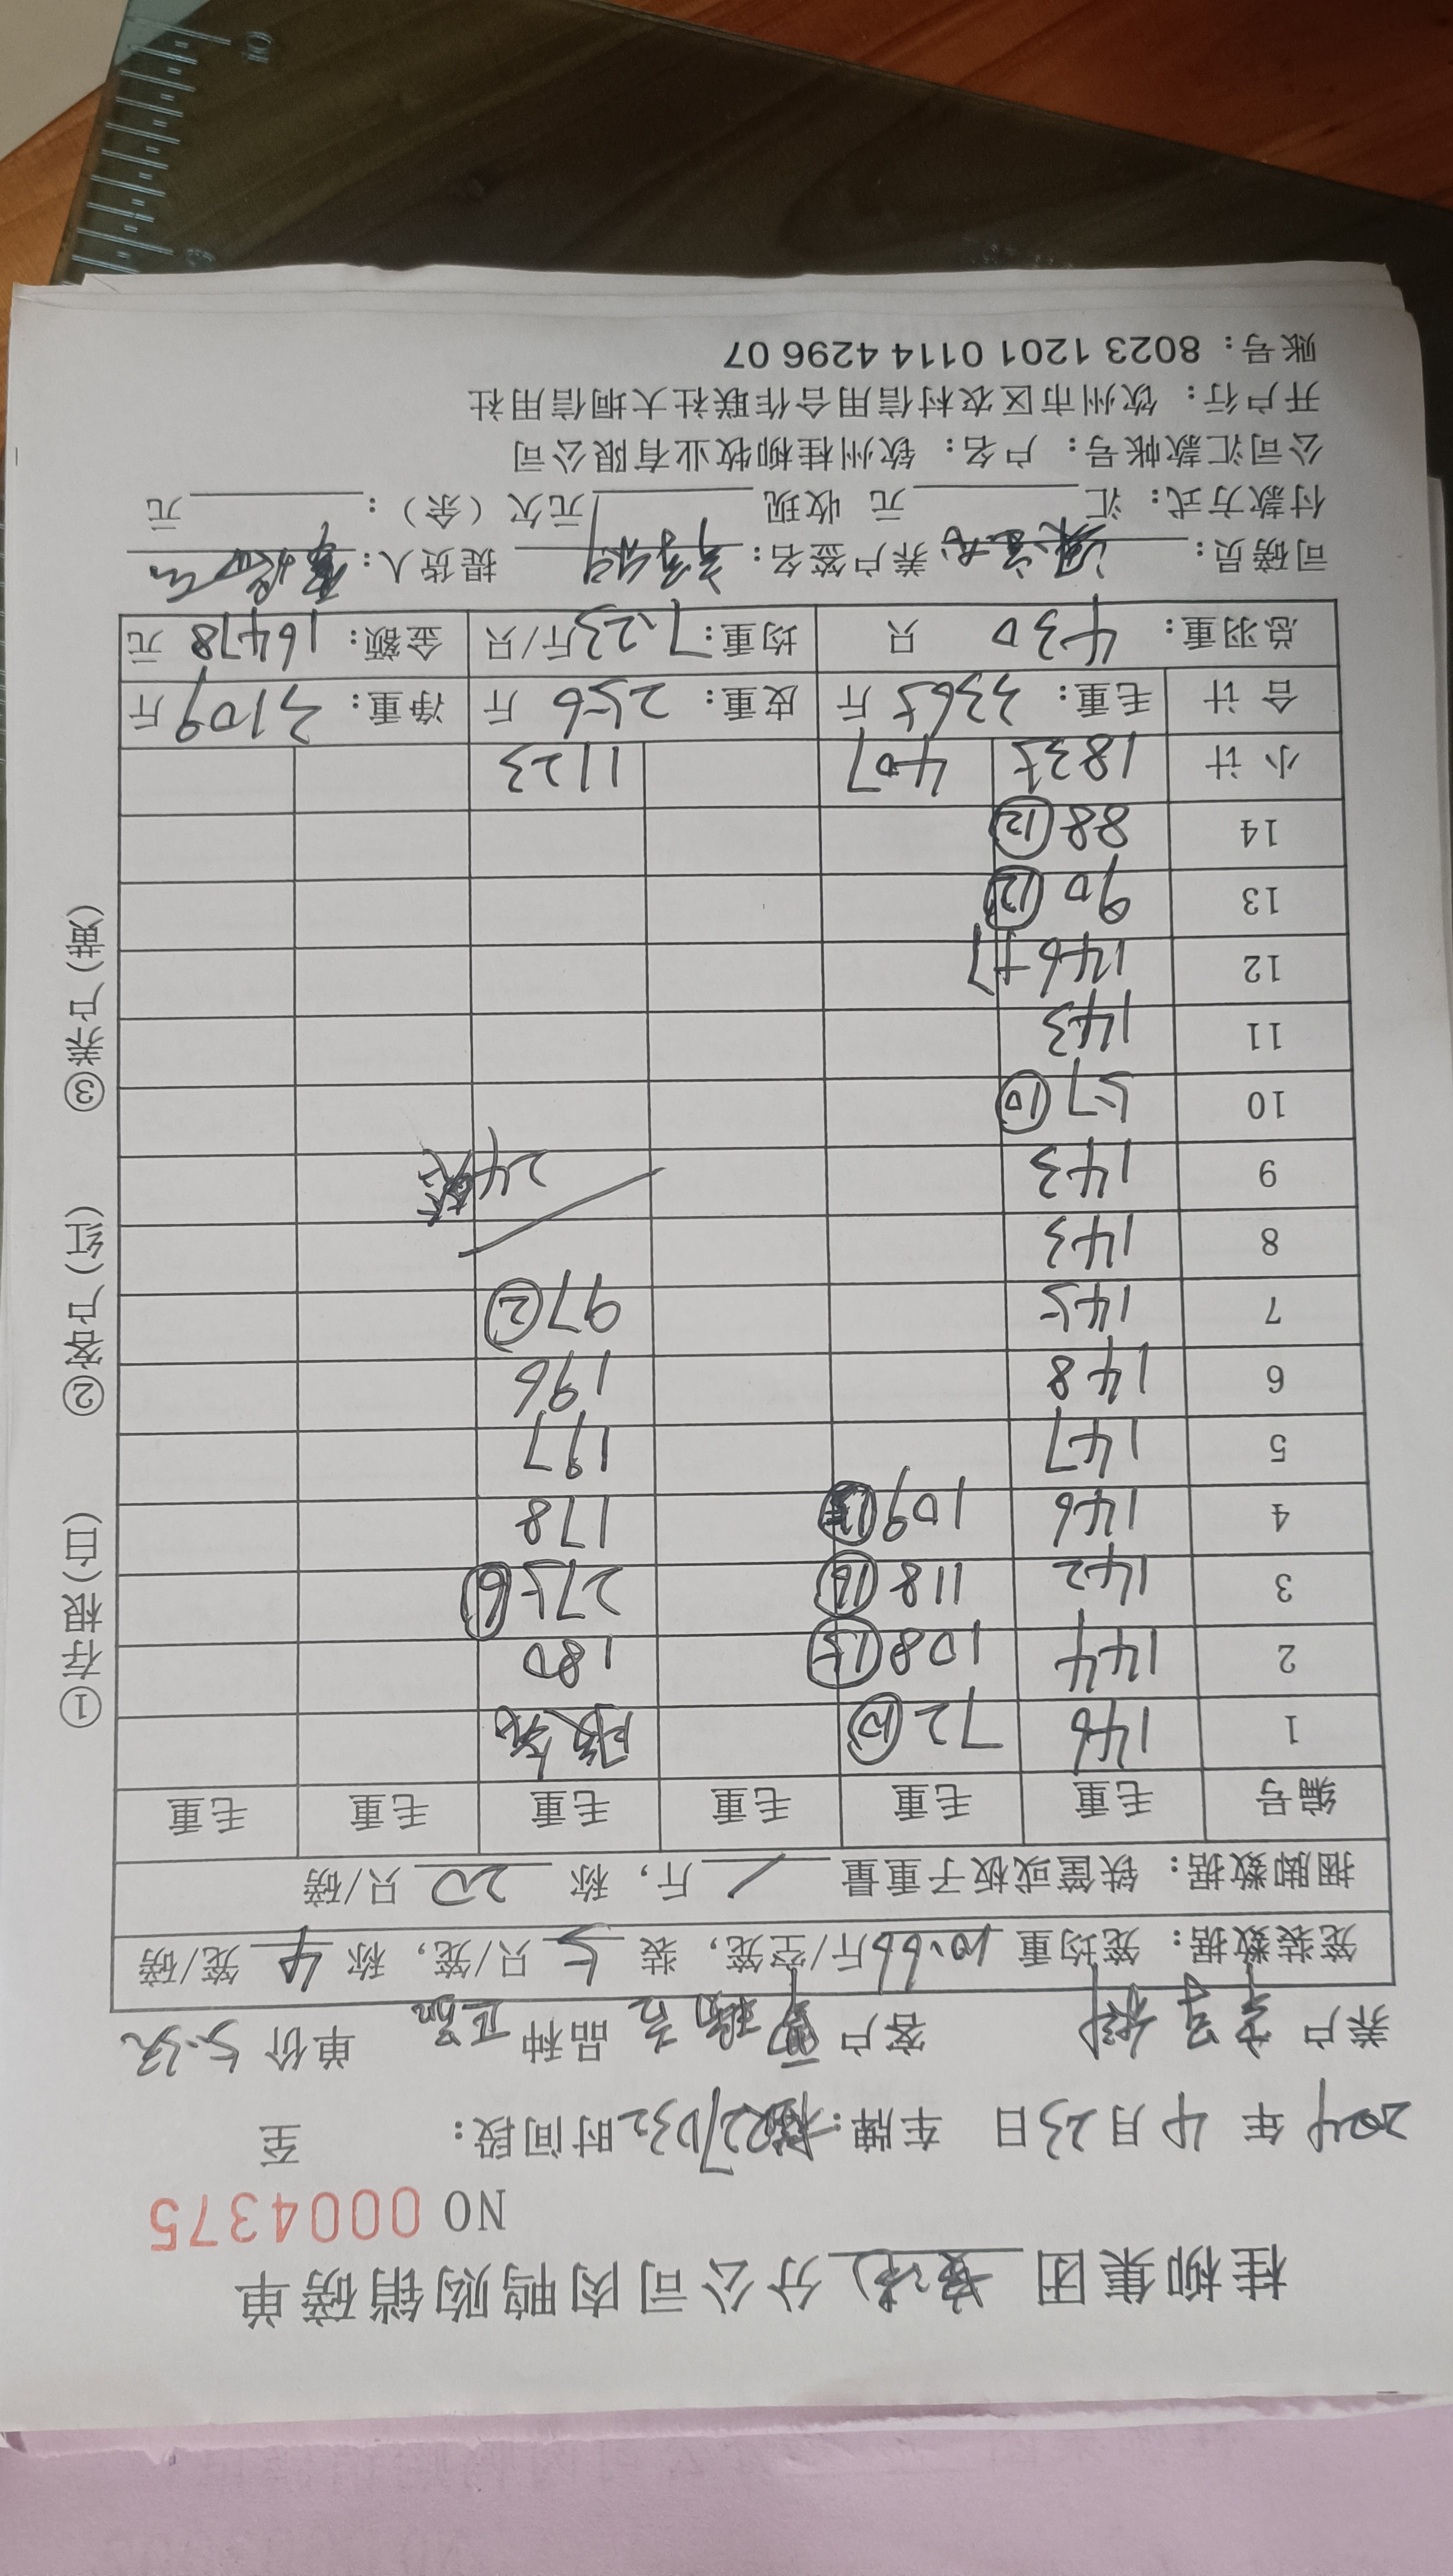 桂柳集团 分公司肉鸭购销磅单
NO 0004375
2024 年 4 月 23 日 车牌: 227D32 时间段: 至
养户 客户 品种 单价 5.3
笼装数据: 笼均重 10.66 斤/空笼, 装 5 只/笼, 称 4 笼/磅
捆脚数据: 铁筐或板子重量 / 斤, 称 20 只/磅
编号 毛重 毛重 毛重 毛重 毛重 毛重
1 146 72 ⑩
2 144 108 ⑮ 180
3 142 118 ⑯ 275 ⑥
4 146 109 178
5 147 197
6 148 196
7 145 97 ②
8 143
9 143 24笼
10 57 ⑩
11 143
12 146+7
13 90 ⑫
14 88 ⑫
小计 1835 407 1123
合计 毛重: 3365 斤 皮重: 256 斤 净重: 3109 斤
总羽重: 430 只 均重: 7.23 斤/只 金额: 16478 元
司磅员: 养户签名: 提货人:
付款方式: 汇 元 收现 元欠(余): 元
公司汇款帐号: 户名: 钦州桂柳牧业有限公司
开户行: 钦州市区农村信用合作联社大垌信用社
账号: 8023 1201 0114 4296 07
①存根(白) ②客户(红) ③养户(黄)